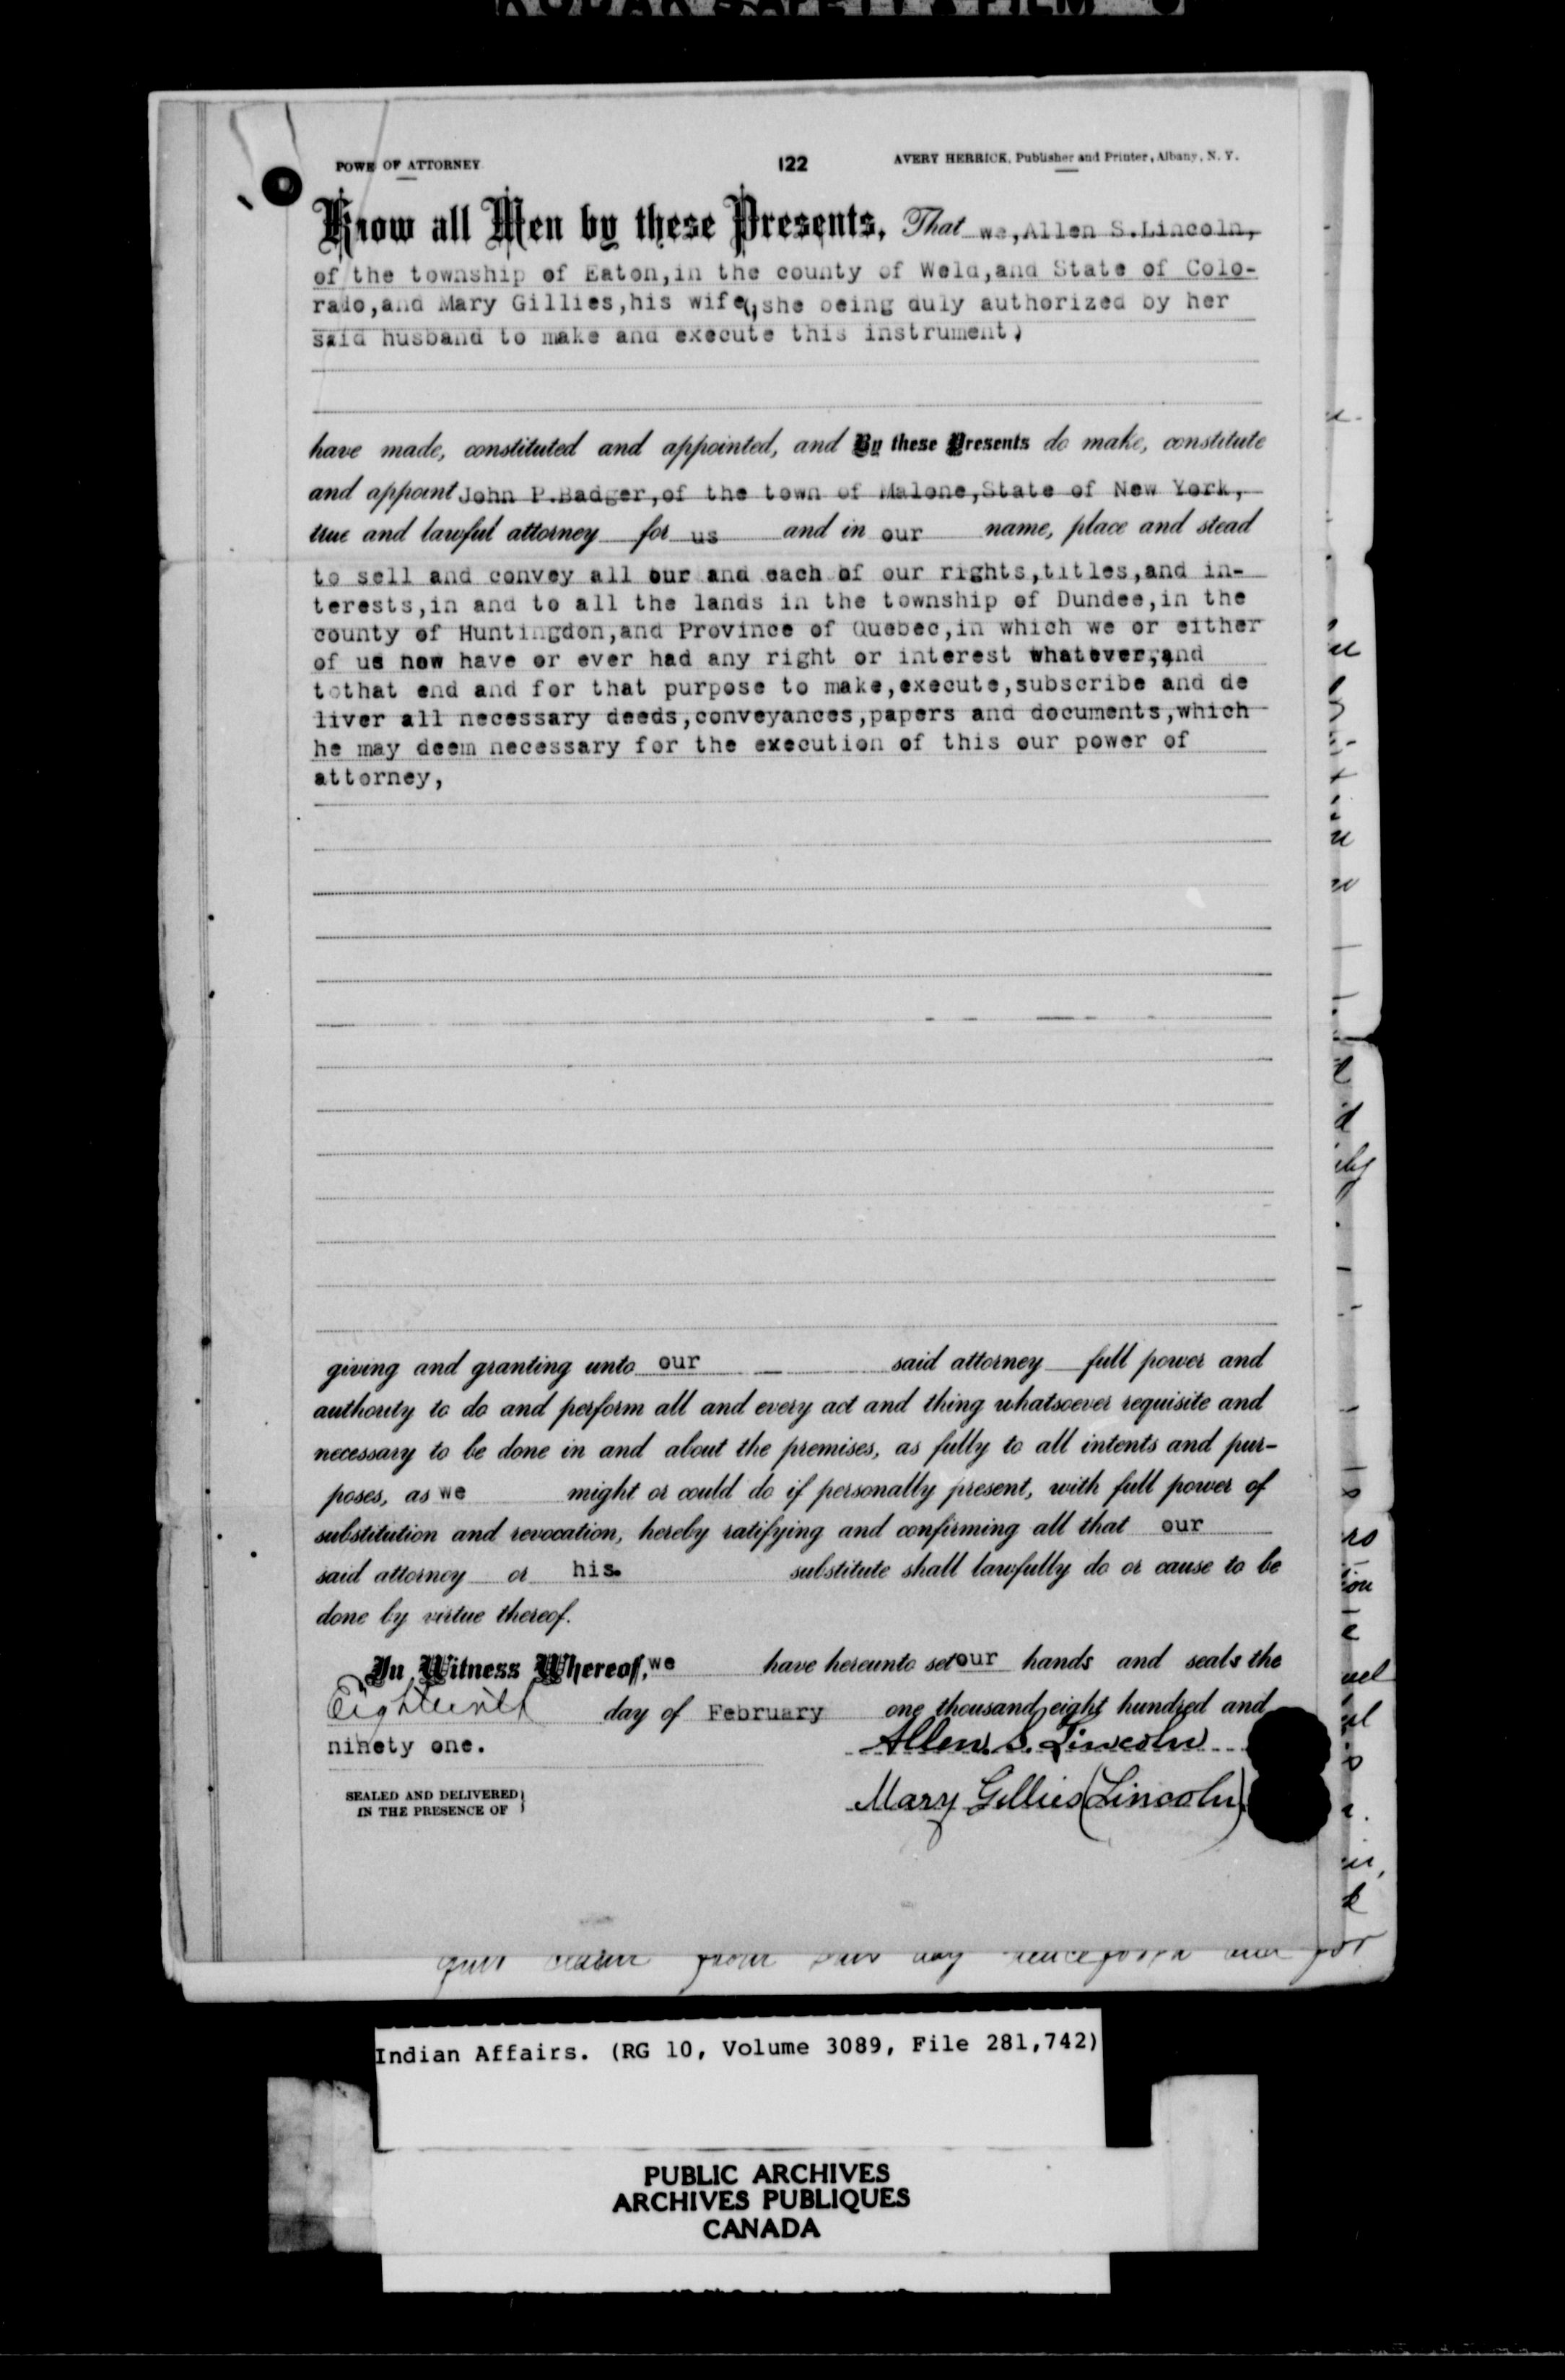 KODAK SAFETY FILM
POWE OF ATTORNEY 122 AVERY HERRICK, Publisher and Printer, Albany, N. Y.
Know all Men by these Presents, That we,Allen S.Lincoln,
of the township of Eaton,in the county of Weld,and State of Colo-
rado,and Mary Gillies,his wife(,she being duly authorized by her
said husband to make and execute this instrument)
have made, constituted and appointed, and By these Presents do make, constitute
and appoint John P.Badger,of the town of Malone,State of New York,
true and lawful attorney for us and in our name, place and stead
to sell and convey all our and each of our rights,titles,and in-
terests,in and to all the lands in the township of Dundee,in the
county of Huntingdon,and Province of Quebec,in which we or either
of us now have or ever had any right or interest whatever,and
tothat end and for that purpose to make,execute,subscribe and de
liver all necessary deeds,conveyances,papers and documents,which
he may deem necessary for the execution of this our power of
attorney,
giving and granting unto our said attorney full power and
authority to do and perform all and every act and thing whatsoever requisite and
necessary to be done in and about the premises, as fully to all intents and pur-
poses, as we might or could do if personally present, with full power of
substitution and revocation, hereby ratifying and confirming all that our
said attorney or his. substitute shall lawfully do or cause to be
done by virtue thereof.
In Witness Whereof, we have hereunto set our hands and seals the
Eighteenth day of February one thousand eight hundred and
ninety one. Allen. S. Lincoln
SEALED AND DELIVERED Mary Gillies (Lincoln)
IN THE PRESENCE OF
from this day henceforth and for
Indian Affairs. (RG 10, Volume 3089, File 281,742)
PUBLIC ARCHIVES
ARCHIVES PUBLIQUES
CANADA